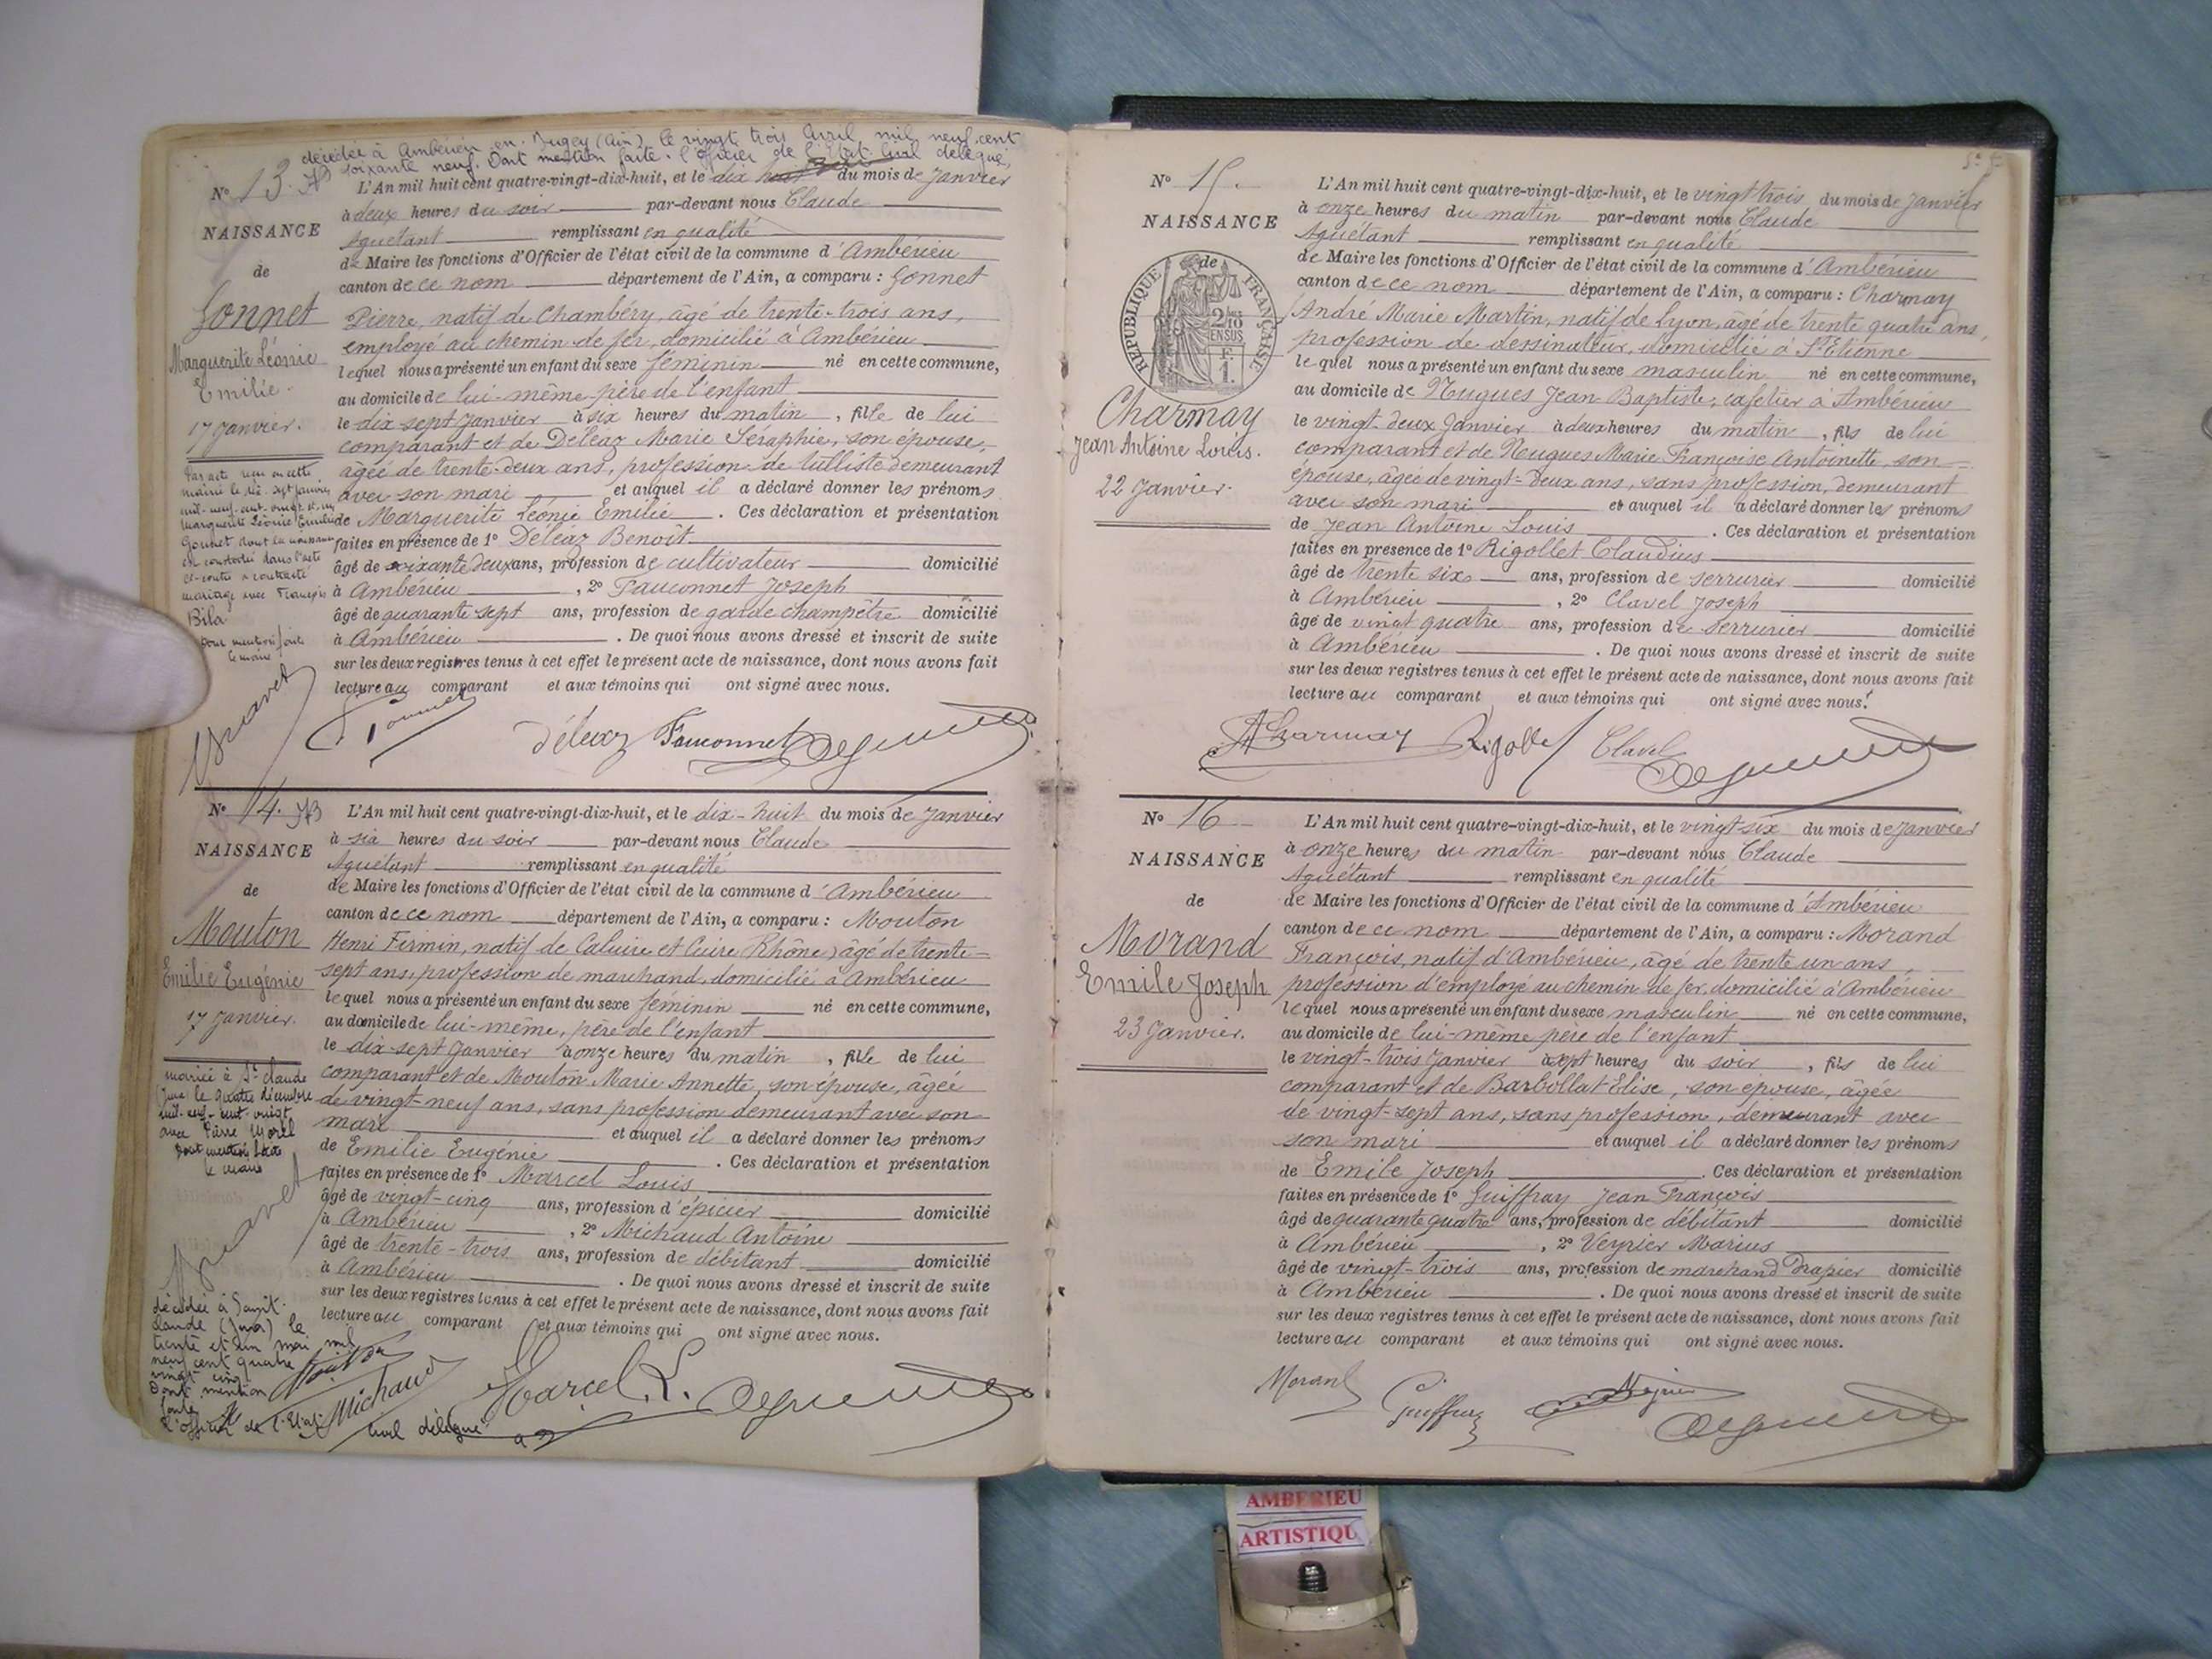 décédée à Ambérieu en Bugey (Ain) le vingt trois Avril mil neuf cent
soixante neuf. Dont mention faite. l'officier de l'Etat Civil délégué,
N° 13.
L'An mil huit cent quatre-vingt-dix-huit, et le dix huit du mois de Janvier
à deux heures du soir par-devant nous Claude
NAISSANCE
Aguétant remplissant en qualité
de Maire les fonctions d'Officier de l'état civil de la commune d'Ambérieu
de
canton de ce nom département de l'Ain, a comparu : Gonnet
Gonnet
Pierre, natif de Chambéry, âgé de trente-trois ans,
employé au chemin de fer, domicilié à Ambérieu
Marguerite Léonie
Emilie.
lequel nous a présenté un enfant du sexe féminin né en cette commune,
au domicile de lui-même père de l'enfant
17 Janvier.
le dix-sept Janvier à six heures du matin, fille de lui
comparant et de Déléaz Marie Séraphie, son épouse,
âgée de trente-deux ans, profession de tulliste demeurant
avec son mari et auquel il a déclaré donner les prénoms
de Marguerite Léonie Emilie. Ces déclaration et présentation
faites en présence de 1° Déléaz Benoît
âgé de soixante deux ans, profession de cultivateur domicilié
à Ambérieu, 2° Fauconnet Joseph
âgé de quarante sept ans, profession de garde champêtre domicilié
à Ambérieu. De quoi nous avons dressé et inscrit de suite
sur les deux registres tenus à cet effet le présent acte de naissance, dont nous avons fait
lecture au comparant et aux témoins qui ont signé avec nous.
Par acte reçu en cette
mairie le dix-sept Janvier
mil-neuf-cent-vingt et un
Marguerite Léonie Emilie
Gonnet dont la naissance
est constatée dans l'acte
ci-contre a contracté
mariage avec François
Bila
Dont mention faite
le maire
P. Gonnet Déléaz Fauconnet
N° 14.
L'An mil huit cent quatre-vingt-dix-huit, et le dix-huit du mois de Janvier
à six heures du soir par-devant nous Claude
NAISSANCE
Aguétant remplissant en qualité
de
de Maire les fonctions d'Officier de l'état civil de la commune d'Ambérieu
canton de ce nom département de l'Ain, a comparu : Mouton
Mouton
Henri Firmin, natif de Caluire et Cuire (Rhône) âgé de trente=
sept ans, profession de marchand, domicilié à Ambérieu
Emilie Eugénie
lequel nous a présenté un enfant du sexe féminin né en cette commune,
17 Janvier.
au domicile de lui-même, père de l'enfant
le dix-sept Janvier à onze heures du matin, fille de lui
comparant et de Mouton Marie Annette, son épouse, âgée
de vingt-neuf ans, sans profession demeurant avec son
mari et auquel il a déclaré donner les prénoms
de Emilie Eugénie. Ces déclaration et présentation
faites en présence de 1° Marcel Louis
âgé de vingt-cinq ans, profession d'épicier domicilié
à Ambérieu, 2° Michaud Antoine
âgé de trente-trois ans, profession de débitant domicilié
à Ambérieu. De quoi nous avons dressé et inscrit de suite
sur les deux registres tenus à cet effet le présent acte de naissance, dont nous avons fait
lecture au comparant et aux témoins qui ont signé avec nous.
mariée à St-Claude
(Jura) le quatre décembre
mil-neuf-cent vingt
avec Pierre Morel
Dont mention faite
le maire
décédée à Saint-
Claude (Jura) le
trente et un mai mil
neuf cent quatre
vingt cinq
Dont mention
faite
L'officier de l'Etat
civil délégué
Mouton Michaud Marcel. L.
N° 15.
L'An mil huit cent quatre-vingt-dix-huit, et le vingt trois du mois de Janvier
à onze heures du matin par-devant nous Claude
NAISSANCE
Aguétant remplissant en qualité
de
de Maire les fonctions d'Officier de l'état civil de la commune d'Ambérieu
REPUBLIQUE FRANÇAISE
2/10 EN SUS
F. 1.
canton de ce nom département de l'Ain, a comparu : Charmay
André Marie Martin, natif de Lyon, âgé de trente quatre ans,
profession de dessinateur, domicilié à St Etienne
lequel nous a présenté un enfant du sexe masculin né en cette commune,
au domicile de Nugues Jean-Baptiste, cafetier à Ambérieu
Charmay
Jean Antoine Louis.
22 Janvier.
le vingt-deux Janvier à deux heures du matin, fils de lui
comparant et de Nugues Marie Françoise Antoinette, son
épouse, âgée de vingt=deux ans, sans profession, demeurant
avec son mari et auquel il a déclaré donner les prénoms
de Jean Antoine Louis. Ces déclaration et présentation
faites en présence de 1° Rigollet Claudius
âgé de trente six ans, profession de serrurier domicilié
à Ambérieu, 2° Clavel Joseph
âgé de vingt quatre ans, profession de serrurier domicilié
à Ambérieu. De quoi nous avons dressé et inscrit de suite
sur les deux registres tenus à cet effet le présent acte de naissance, dont nous avons fait
lecture au comparant et aux témoins qui ont signé avec nous.
A Charmay Rigollet Clavel
N° 16
L'An mil huit cent quatre-vingt-dix-huit, et le vingt-six du mois de Janvier
à onze heures du matin par-devant nous Claude
NAISSANCE
Aguétant remplissant en qualité
de
de Maire les fonctions d'Officier de l'état civil de la commune d'Ambérieu
canton de ce nom département de l'Ain, a comparu : Morand
Morand
François, natif d'Ambérieu, âgé de trente un ans,
Emile Joseph
profession d'employé au chemin de fer, domicilié à Ambérieu
lequel nous a présenté un enfant du sexe masculin né en cette commune,
23 Janvier.
au domicile de lui-même père de l'enfant
le vingt-trois Janvier à sept heures du soir, fils de lui
comparant et de Barbollat Elise, son épouse, âgée
de vingt-sept ans, sans profession, demeurant avec
son mari et auquel il a déclaré donner les prénoms
de Emile Joseph. Ces déclaration et présentation
faites en présence de 1° Guiffray Jean François
âgé de quarante quatre ans, profession de débitant domicilié
à Ambérieu, 2° Veyrier Marius
âgé de vingt-trois ans, profession de marchand drapier domicilié
à Ambérieu. De quoi nous avons dressé et inscrit de suite
sur les deux registres tenus à cet effet le présent acte de naissance, dont nous avons fait
lecture au comparant et aux témoins qui ont signé avec nous.
Morand Guiffray Veyrier
AMBERIEU
ARTISTIQU